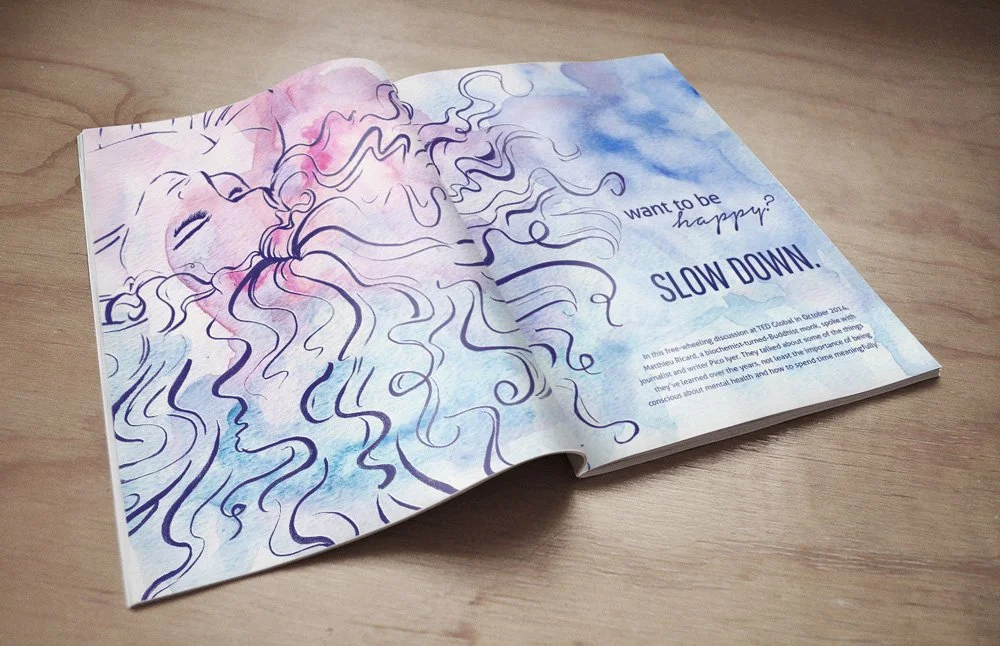 want to be
happy?
SLOW DOWN.
In this free-wheeling discussion at TED Global in October 2014,
Matthieu Ricard, a biochemist-turned-Buddhist monk, spoke with
journalist and writer Pico Iyer. They talked about some of the things
they've learned over the years, not least the importance of being
conscious about mental health and how to spend time meaningfully